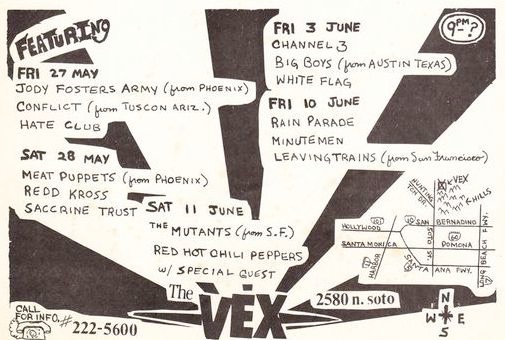 FEATURING
FRI 27 MAY
JODY FOSTERS ARMY (from PHOENIX)
CONFLICT (from TUSCON ARIZ.)
HATE CLUB
SAT 28 MAY
MEAT PUPPETS (from PHOENIX)
REDD KROSS
SACCRINE TRUST
SAT 11 JUNE
THE MUTANTS (from S.F.)
RED HOT CHILI PEPPERS
w/ SPECIAL GUEST
FRI 3 JUNE
CHANNEL 3
BIG BOYS (from AUSTIN TEXAS)
WHITE FLAG
FRI 10 JUNE
RAIN PARADE
MINUTEMEN
LEAVING TRAINS (from San Francisco)
9PM-?
VEX
HILLS
HUNTINGTON DR.
HOLLYWOOD
101
10
SAN BERNADINO FWY.
SANTA MONICA
SOTO ST.
60
POMONA
HARBOR
SANTA ANA FWY.
LONG BEACH
The VEX
2580 n. soto
CALL
FOR INFO.
# 222-5600
N
W E
S